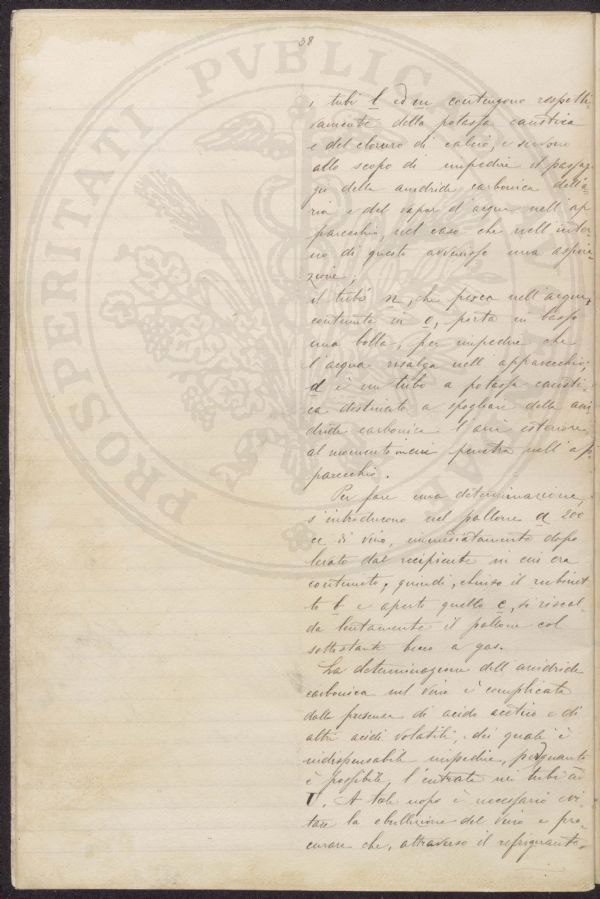 38
i tubi l ed m contengono rispetti-
vamente della potassa caustica
e del cloruro di calcio, e servono
allo scopo di impedire il passag-
gio della anidride carbonica dell'a-
ria e del vapor d'acqua nell'ap
parecchio, nel caso che nell'inter-
no di questo avvenisse una aspira-
zione;
il tubo n, che pesca nell'acqua
contenuta in e, porta in basso
una bolla, per impedire che
l'acqua risalga nell'apparecchio;
d è un tubo a potassa causti-
ca destinato a spogliare della ani
dride carbonica l'aria esteriore
al momento in cui penetra nell'ap-
parecchio.
Per fare una determinazione,
s'introducono nel pallone a 200
cc di vino, immediatamente dopo
levato dal recipiente in cui era
contenuto; quindi, chiuso il rubinet
to b e aperto quello c, si riscal-
da lentamente il pallone col
sottostante becco a gas.
La determinazione dell'anidride
carbonica nel vino è complicata
dalla presenza di acido acetico e di
altri acidi volatili, dei quali è
indispensabile impedire, per quanto
è possibile, l'entrata nei tubi ad
U. A tale uopo è necessario evi-
tare la ebullizione del vino e pro-
curare che, attraverso il refrigerante,
PROSPERITATI PVBLICAE